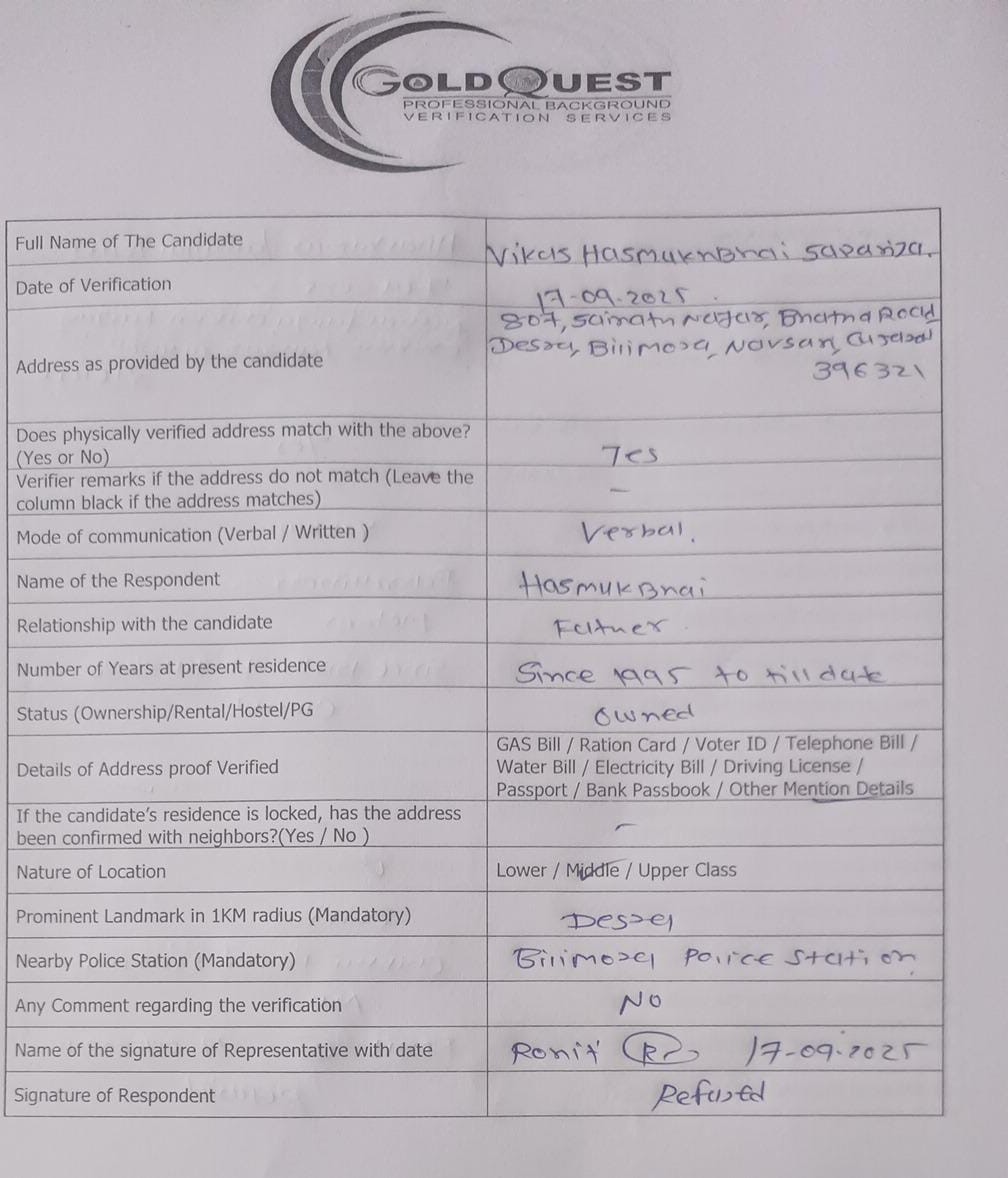 GOLDQUEST
PROFESSIONAL BACKGROUND
VERIFICATION SERVICES
Full Name of The Candidate
Vikas HasmukhBhai Sapariya.
Date of Verification
17-09-2025.
Address as provided by the candidate
807, Samath Nagar, Bhatha Road
Desra, Bilimora, Navsari, Gujarat
396321
Does physically verified address match with the above?
(Yes or No)
Yes
Verifier remarks if the address do not match (Leave the
column black if the address matches)
–
Mode of communication (Verbal / Written )
Verbal.
Name of the Respondent
HasmukBhai
Relationship with the candidate
Father
Number of Years at present residence
Since 1995 to till date
Status (Ownership/Rental/Hostel/PG
Owned
Details of Address proof Verified
GAS Bill / Ration Card / Voter ID / Telephone Bill /
Water Bill / Electricity Bill / Driving License /
Passport / Bank Passbook / Other Mention Details
If the candidate's residence is locked, has the address
been confirmed with neighbors?(Yes / No )
–
Nature of Location
Lower / Middle / Upper Class
Prominent Landmark in 1KM radius (Mandatory)
Desra
Nearby Police Station (Mandatory)
Bilimora Police Station
Any Comment regarding the verification
NO
Name of the signature of Representative with date
Ronit 17-09-2025
Signature of Respondent
Refused